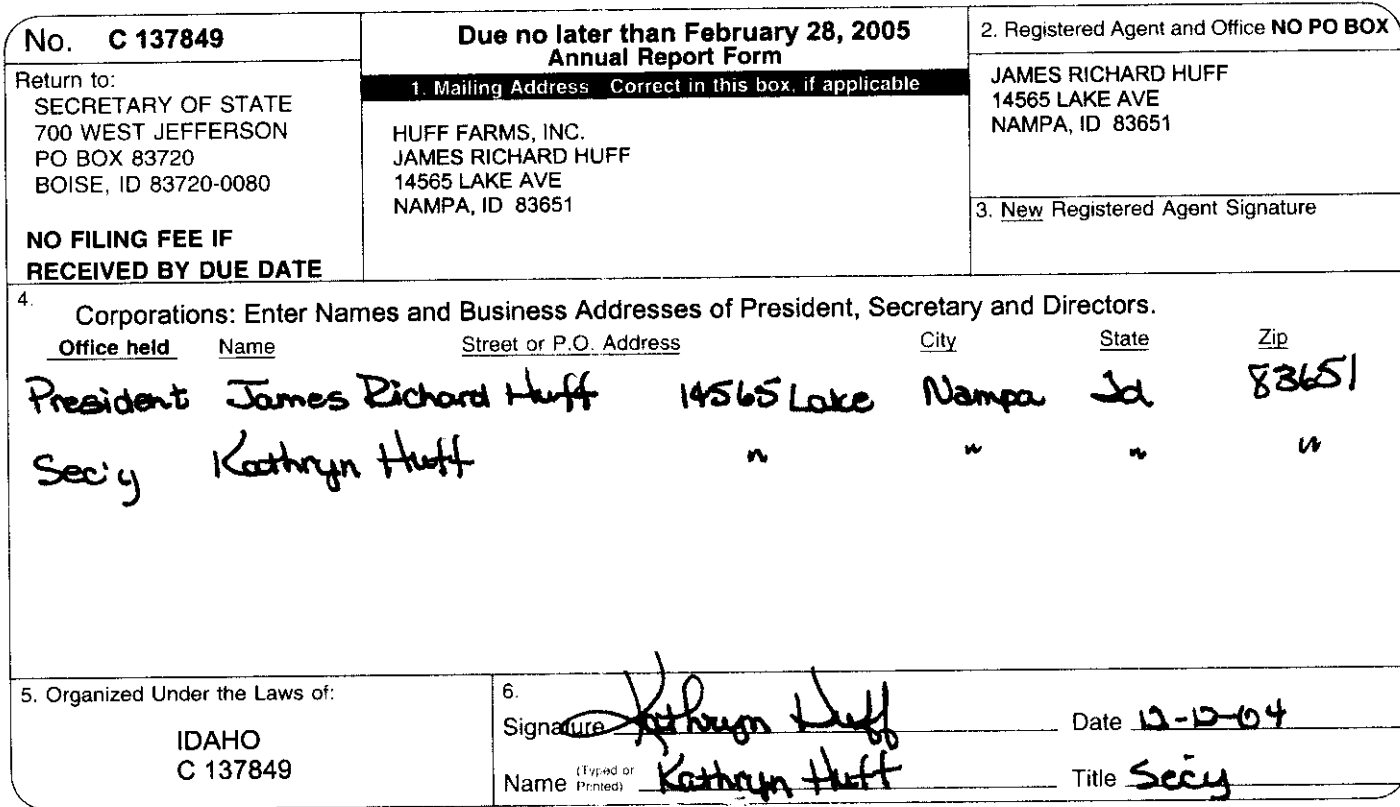 No. C 137849
Return to:
SECRETARY OF STATE
700 WEST JEFFERSON
PO BOX 83720
BOISE, ID 83720-0080
NO FILING FEE IF
RECEIVED BY DUE DATE
Due no later than February 28, 2005
Annual Report Form
1. Mailing Address Correct in this box, if applicable
HUFF FARMS, INC.
JAMES RICHARD HUFF
14565 LAKE AVE
NAMPA, ID 83651
2. Registered Agent and Office NO PO BOX
JAMES RICHARD HUFF
14565 LAKE AVE
NAMPA, ID 83651
3. New Registered Agent Signature
4. Corporations: Enter Names and Business Addresses of President, Secretary and Directors.
Office held Name Street or P.O. Address City State Zip
President James Richard Huff 14565 Lake Nampa Id 83651
Sec'y Kathryn Huff " " " "
5. Organized Under the Laws of:
IDAHO
C 137849
6.
Signature Kathryn Huff Date 12-12-04
Name (Typed or Printed) Kathryn Huff Title Sec'y